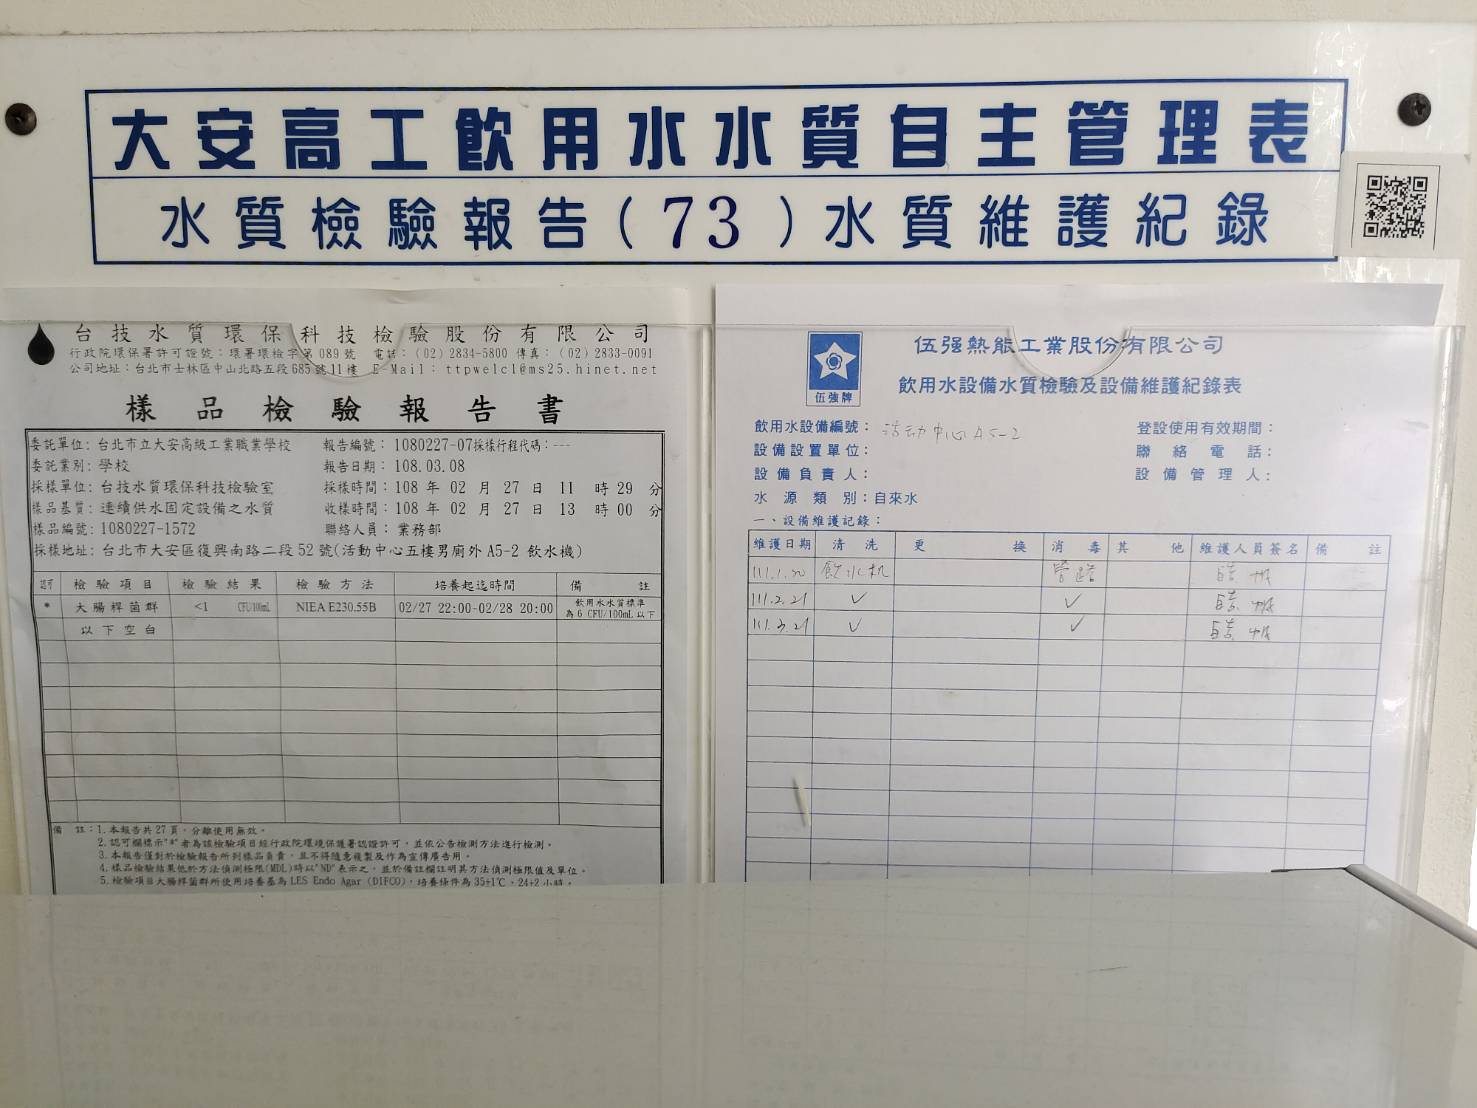 大安高工飲用水水質自主管理表
水質檢驗報告(73)水質維護紀錄
台技水質環保科技檢驗股份有限公司
行政院環保署許可證號：環署環檢字第089號 電話：(02)2834-5800 傳真：(02)2833-0091
公司地址：台北市士林區中山北路五段685號11樓 E-Mail：ttpwelcl@ms25.hinet.net
樣品檢驗報告書
委託單位：台北市立大安高級工業職業學校 報告編號：1080227-07採樣行程代碼：---
委託業別：學校 報告日期：108.03.08
採樣單位：台技水質環保科技檢驗室 採樣時間：108 年 02 月 27 日 11 時 29 分
樣品基質：連續供水固定設備之水質 收樣時間：108 年 02 月 27 日 13 時 00 分
樣品編號：1080227-1572 聯絡人員：業務部
採樣地址：台北市大安區復興南路二段52號(活動中心五樓男廁外A5-2 飲水機)
認可 檢驗項目 檢驗結果 檢驗方法 培養起迄時間 備註
* 大腸桿菌群 <1 CFU/100mL NIEA E230.55B 02/27 22:00-02/28 20:00 飲用水水質標準
為 6 CFU/100mL 以下
以下空白
備 註：1.本報告共27頁，分離使用無效。
2.認可欄標示"*"者為該檢驗項目經行政院環境保護署認證許可，並依公告檢測方法進行檢測。
3.本報告僅對於檢驗報告所列樣品負責，且不得隨意複製及作為宣傳廣告用。
4.樣品檢驗結果低於方法偵測極限(MDL)時以"ND"表示之，並於備註欄註明其方法偵測極限值及單位。
5.檢驗項目大腸桿菌群所使用培養基為LES Endo Agar (DIFCO)，培養條件為35±1℃，24±2小時。
伍强熱能工業股份有限公司
伍強牌
飲用水設備水質檢驗及設備維護紀錄表
飲用水設備編號：活动中心A5-2 登設使用有效期間：
設備設置單位： 聯絡電話：
設備負責人： 設備管理人：
水源類別：自來水
一、設備維護記錄：
維護日期 清洗 更換 消毒 其他 維護人員簽名 備註
111.1.20 飲水机 管路
111.2.21 ✓ ✓
111.3.21 ✓ ✓